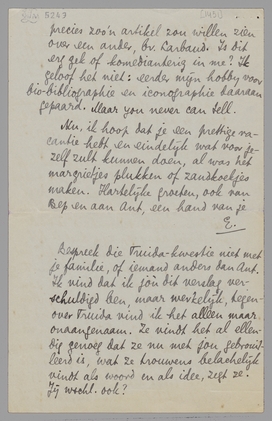 5263
precies zoo'n artikel zou willen zien
over een ander, bv. Larbaud. Is dit
erg gek of komedianterig in me? Ik
geloof het niet: eerder mijn hobby voor
bio-bibliographie en iconographie daaraan
gepaard. Maar you never can tell.
Nu, ik hoop dat je een prettige va-
cantie hebt en eindelijk wat voor je-
zelf zult kunnen doen, al was het
margrietjes plukken of zandkoekjes
maken. Hartelijke groeten, ook van
Bep en aan Ant, een hand van je
E.
Bespreek die Truida-kwestie niet met
je familie, of iemand anders dan Ant.
Ik vind dat ik jou dit verslag ver-
schuldigd ben, maar werkelijk, tegen-
over Truida vind ik het alleen maar
onaangenaam. Ze vindt het al ellen-
dig genoeg dat ze nu met jou gebrouil-
leerd is, wat ze trouwens belachelijk
vindt als woord en als idee, zegt ze.
Jij wschl. ook?